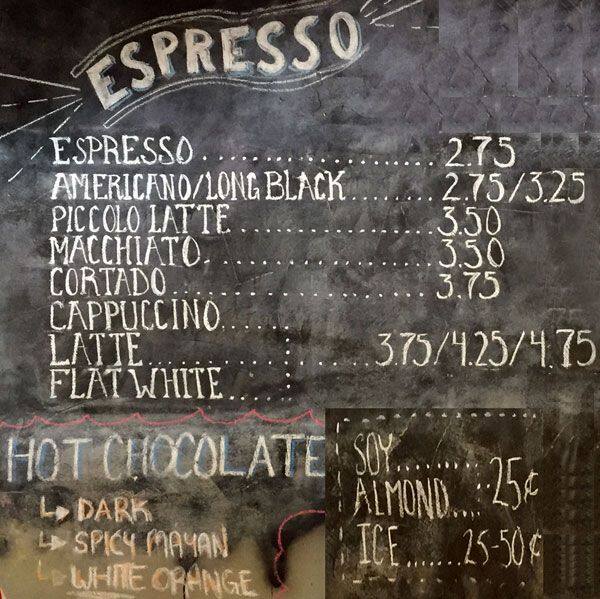 ESPRESSO
ESPRESSO.................2.75
AMERICANO/LONG BLACK........2.75/3.25
PICCOLO LATTE..............3.50
MACCHIATO................3.50
CORTADO................3.75
CAPPUCCINO.....
LATTE..................3.75/4.25/4.75
FLAT WHITE....
HOT CHOCOLATE
↳ DARK
↳ SPICY MAYAN
↳ WHITE ORANGE
SOY........
ALMOND.....25¢
ICE.......25-50¢